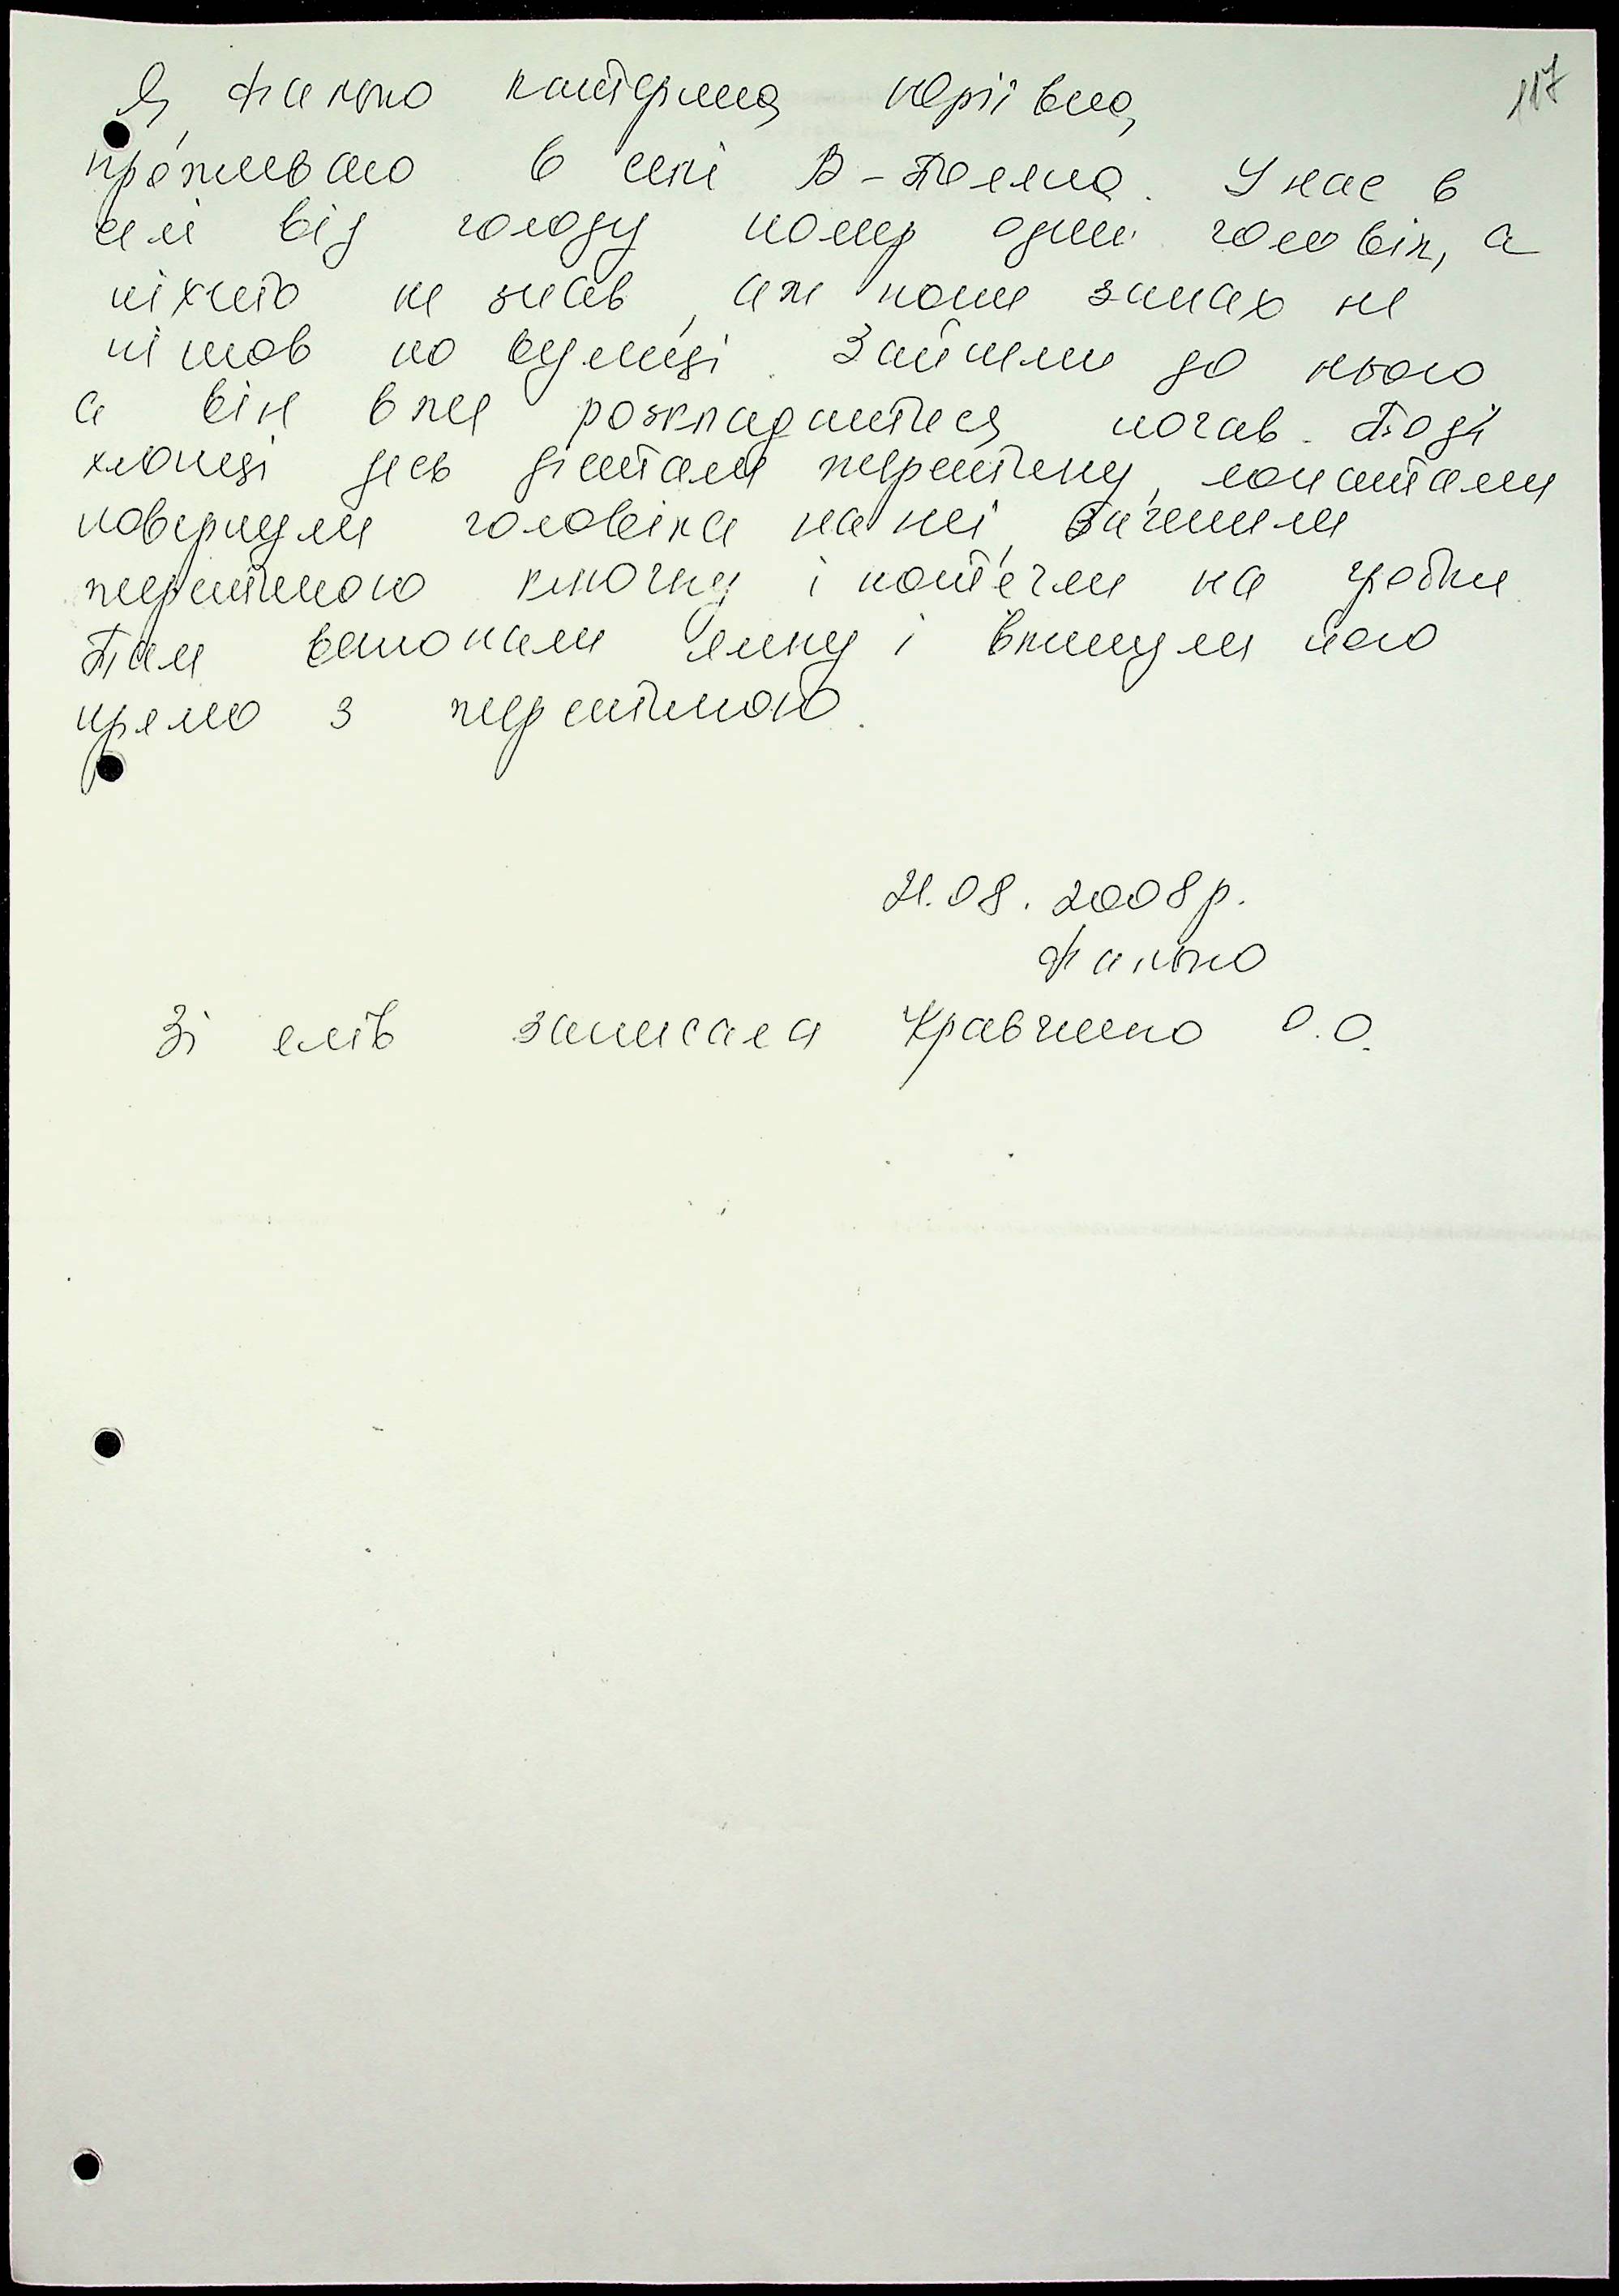 117
Я, Фалько Катерина Юріївна,
проживаю в селі В-Поляна. У нас в
селі від голоду помер один чоловік, а
ніхто не знав, аж поки запах не
пішов по вулиці. Зайшли до нього
а він вже розкладатися почав. Тоді
хлопці десь дістали жердину, лопатами
повернули чоловіка на неї, зачепили
жердиною крючку і потягли на гробки
Там викопали ямку і вкинули його
прямо з жердиною.
21.08.2008р.
Фалько
Зі слів записала Кравченко О.О.